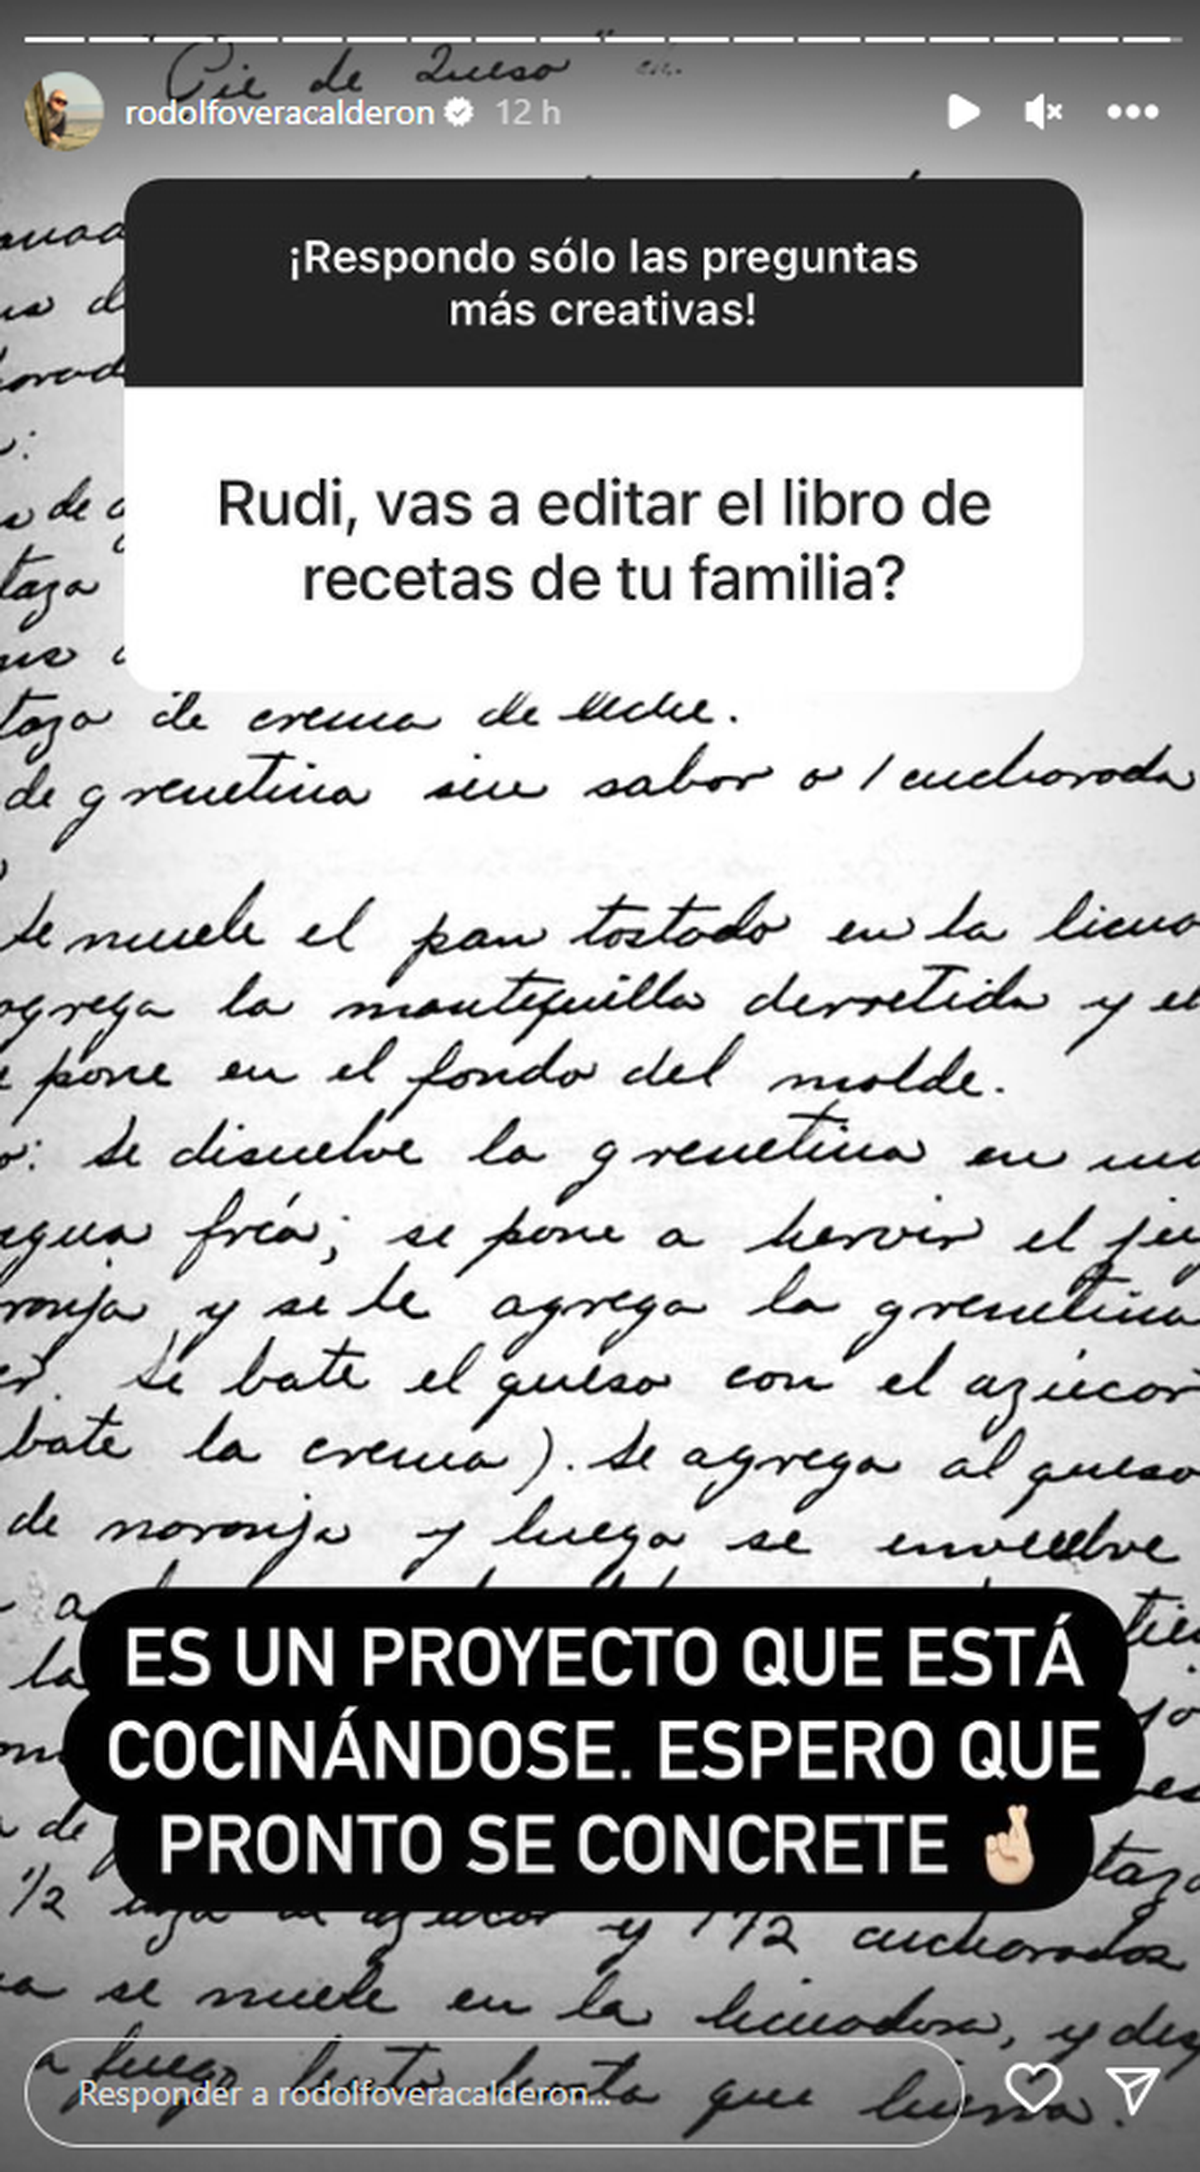 Pie de Queso
rodolfoveracalderon 12 h
¡Respondo sólo las preguntas
más creativas!
Rudi, vas a editar el libro de
recetas de tu familia?
de
taza
taza de crema de leche.
de grenetina sin sabor o 1 cucharada
Se muele el pan tostado en la licua
agrega la mantequilla derretida y el
pone en el fondo del molde.
o: Se disuelve la grenetina en una
agua fría; se pone a hervir el ju
ranja y se le agrega la grenetina
er. Se bate el queso con el azúcar
bate la crema). Se agrega al queso
de naranja y luego se envuelve
a
la
ES UN PROYECTO QUE ESTÁ
COCINÁNDOSE. ESPERO QUE
PRONTO SE CONCRETE 🤞🏻
de
taza
1/2 taza de azúcar y 1 1/2 cucharadas
se muele en la licuadora, y des
a fuego hasta que hierva.
Responder a rodolfoveracalderon...